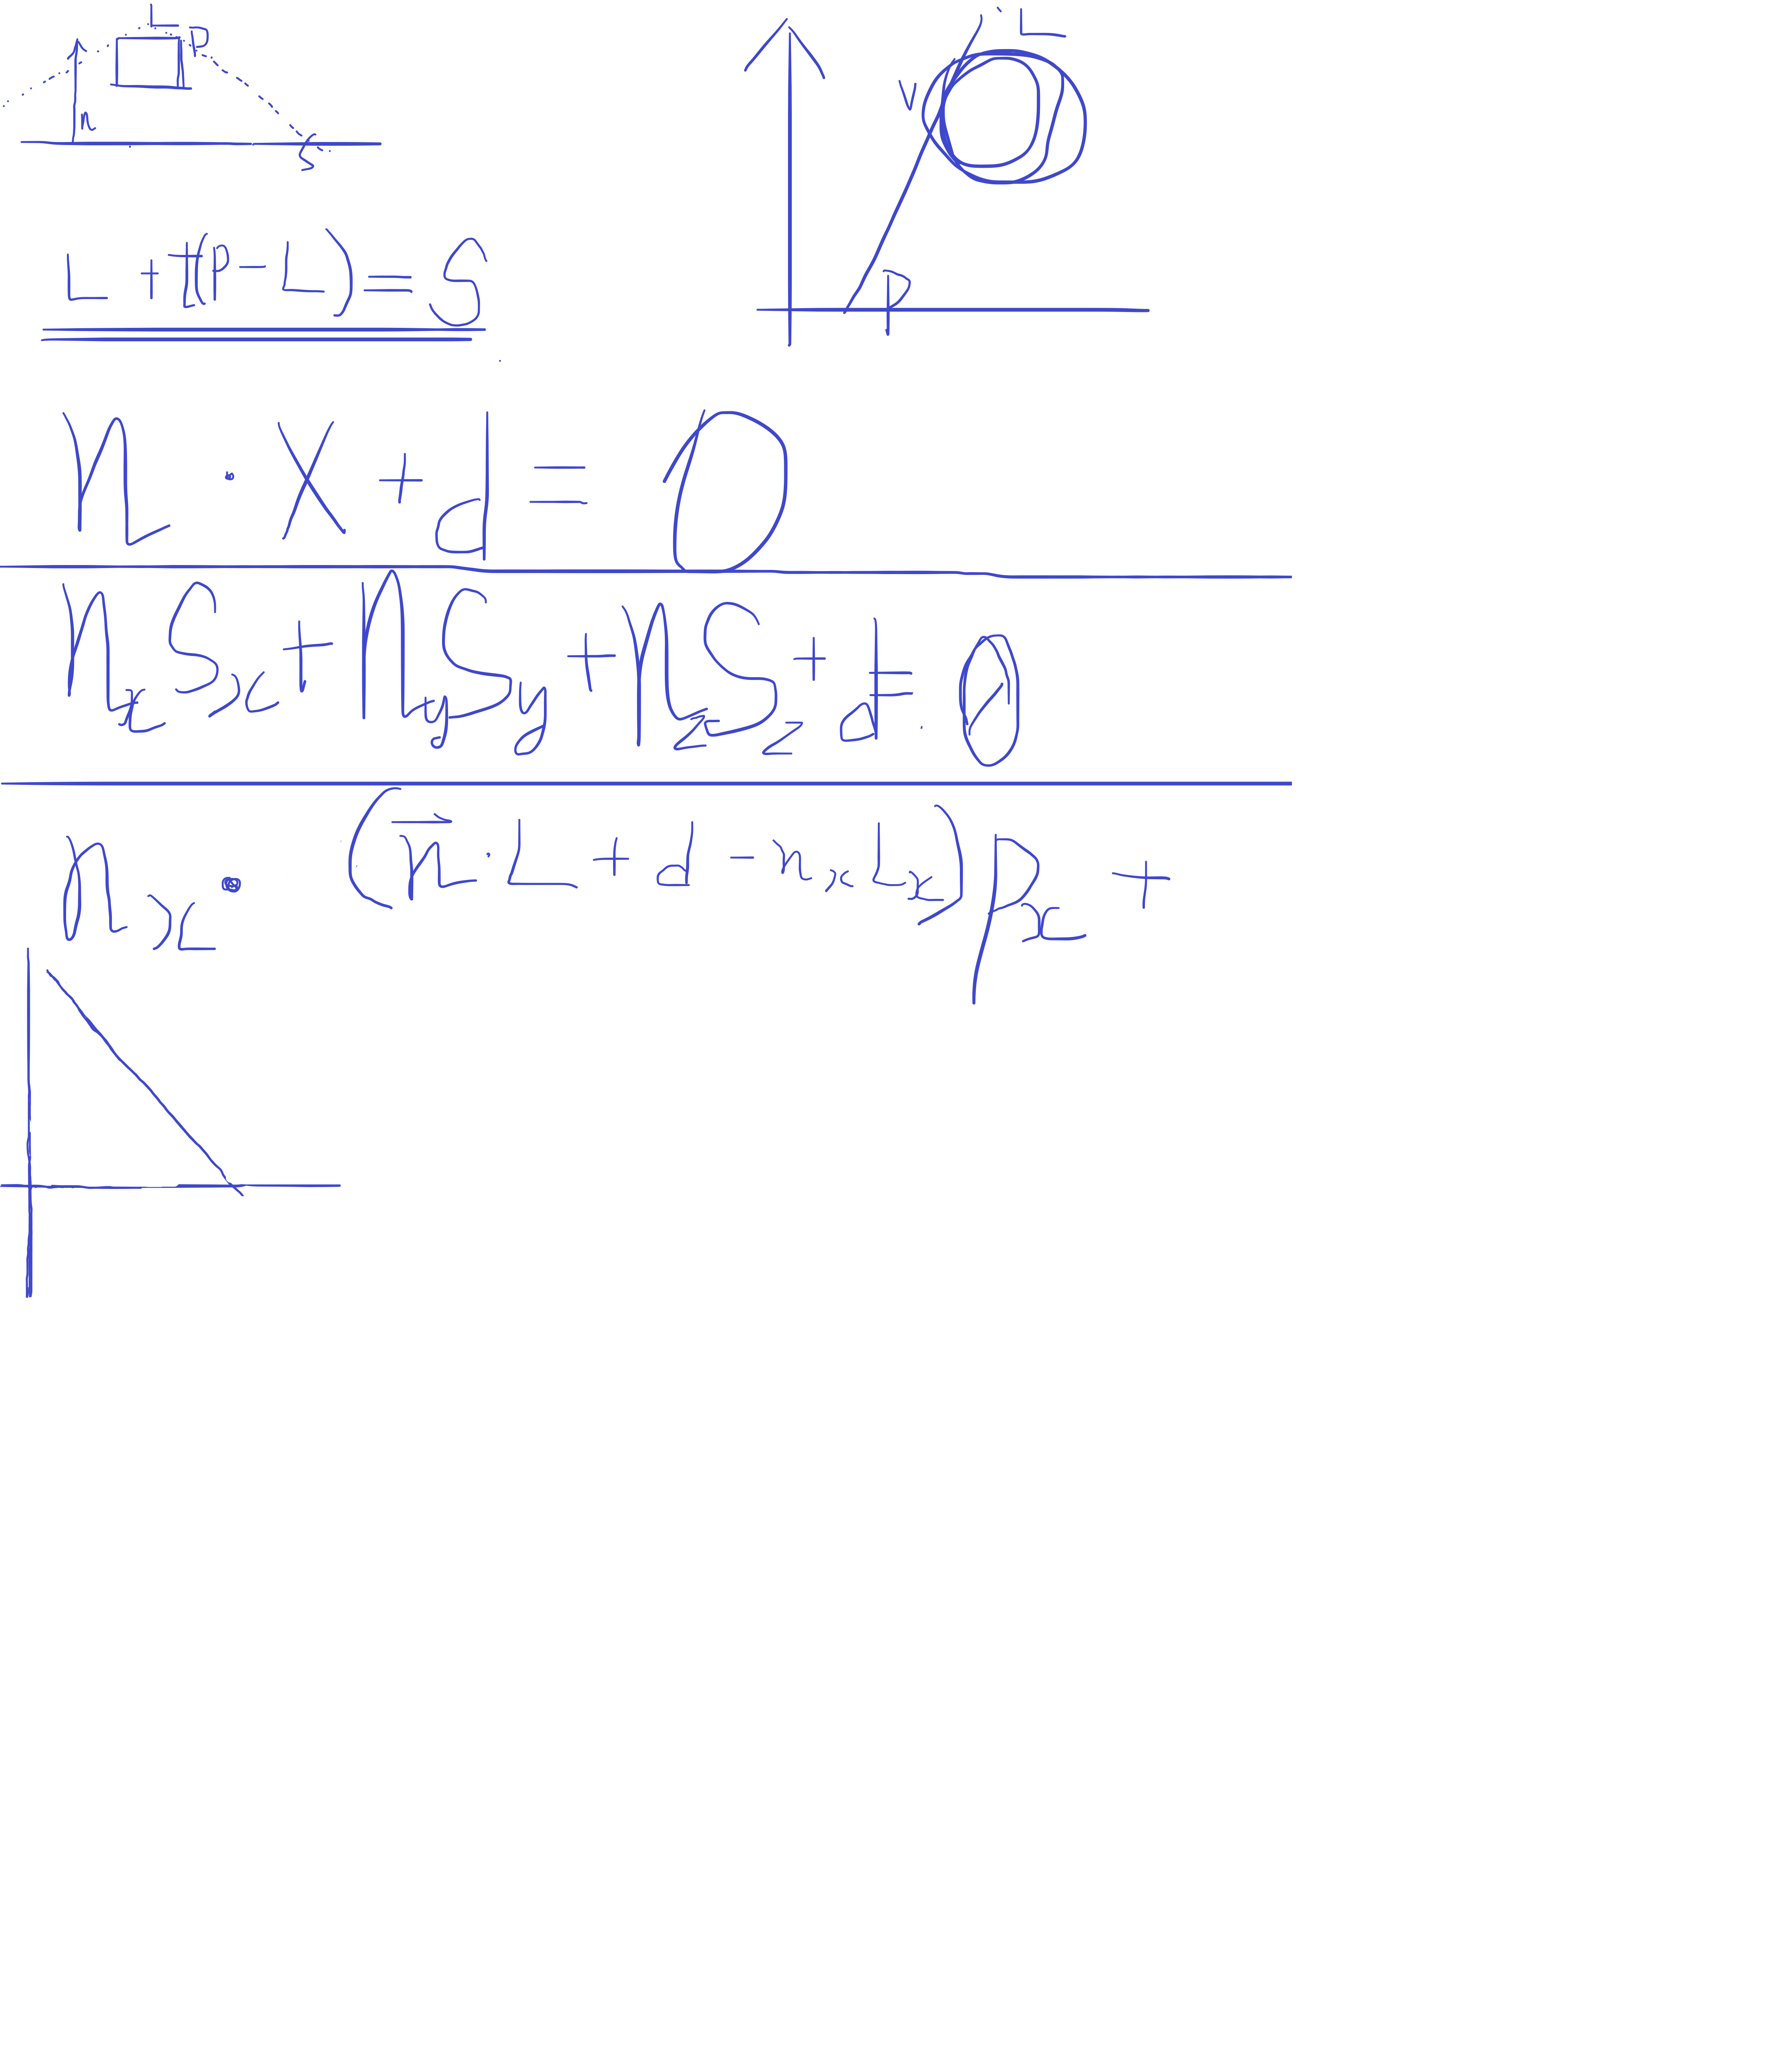 L
P
n
S
L
V
P
L + t(P - L) = S
n · x + d = 0
nₓSₓ + nᵧSᵧ + n_zS_z + d = 0
nₓ · (n⃗ · L + d - nₓLₓ)Pₓ +